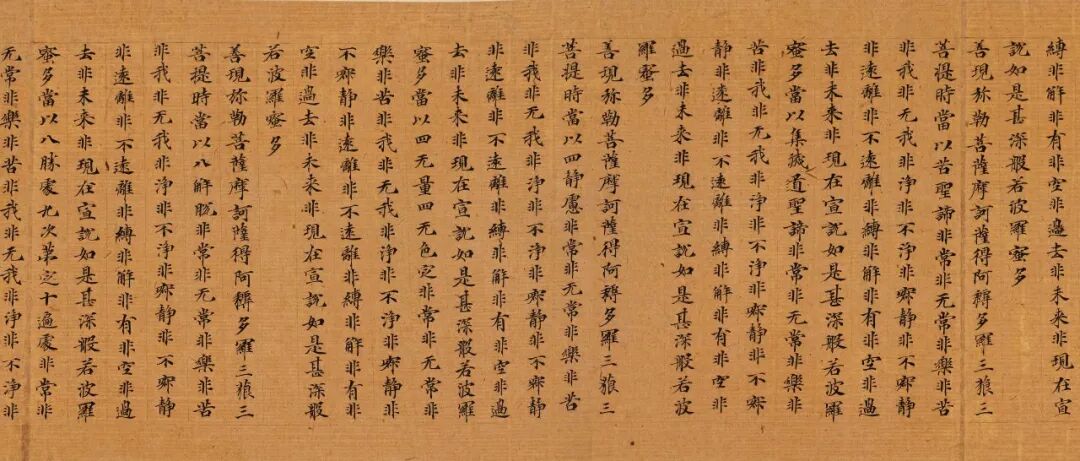 縛非解非有非空非過去非未来非現在宣
說如是甚深般若波羅蜜多
善現弥勒菩薩摩訶薩得阿耨多羅三藐三
菩提時當以苦聖諦非常非无常非樂非苦
非我非无我非淨非不淨非寂靜非不寂靜
非遠離非不遠離非縛非解非有非空非過
去非未来非現在宣說如是甚深般若波羅
蜜多當以集滅道聖諦非常非无常非樂非
苦非我非无我非淨非不淨非寂靜非不寂
靜非遠離非不遠離非縛非解非有非空非
過去非未来非現在宣說如是甚深般若波
羅蜜多
善現弥勒菩薩摩訶薩得阿耨多羅三藐三
菩提時當以四靜慮非常非无常非樂非苦
非我非无我非淨非不淨非寂靜非不寂靜
非遠離非不遠離非縛非解非有非空非過
去非未来非現在宣說如是甚深般若波羅
蜜多當以四无量四无色定非常非无常非
樂非苦非我非无我非淨非不淨非寂靜非
不寂靜非遠離非不遠離非縛非解非有非
空非過去非未来非現在宣說如是甚深般
若波羅蜜多
善現弥勒菩薩摩訶薩得阿耨多羅三藐三
菩提時當以八解脫非常非无常非樂非苦
非我非无我非淨非不淨非寂靜非不寂靜
非遠離非不遠離非縛非解非有非空非過
去非未来非現在宣說如是甚深般若波羅
蜜多當以八勝處九次第定十遍處非常非
无常非樂非苦非我非无我非淨非不淨非